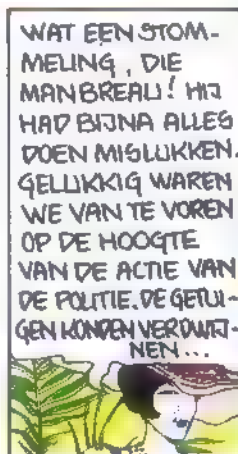 WAT EEN STOM-
MELING, DIE
MANBREAU! HIJ
HAD BIJNA ALLES
DOEN MISLUKKEN.
GELUKKIG WAREN
WE VAN TE VOREN
OP DE HOOGTE
VAN DE ACTIE VAN
DE POLITIE. DE GETUI-
GEN KONDEN VERDWIJ-
NEN...